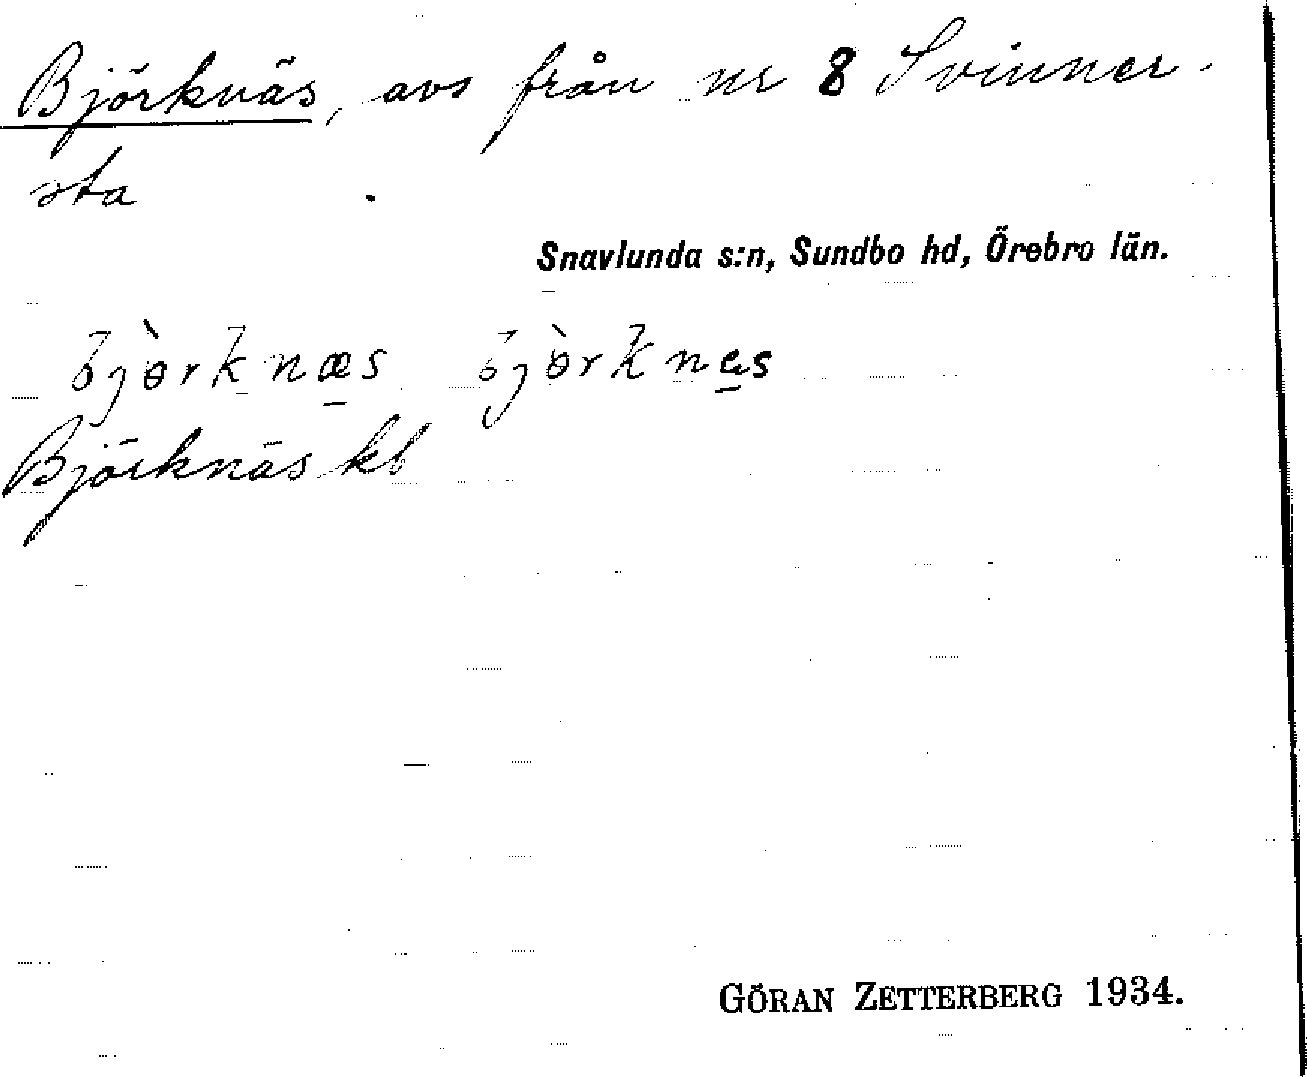 Björknäs, avs från nr 8 Svinner-
sta
Snavlunda s:n, Sundbo hd, Örebro län.
bjὸrknæs bjὸrknes
Björknäs kb
GÖRAN ZETTERBERG 1934.